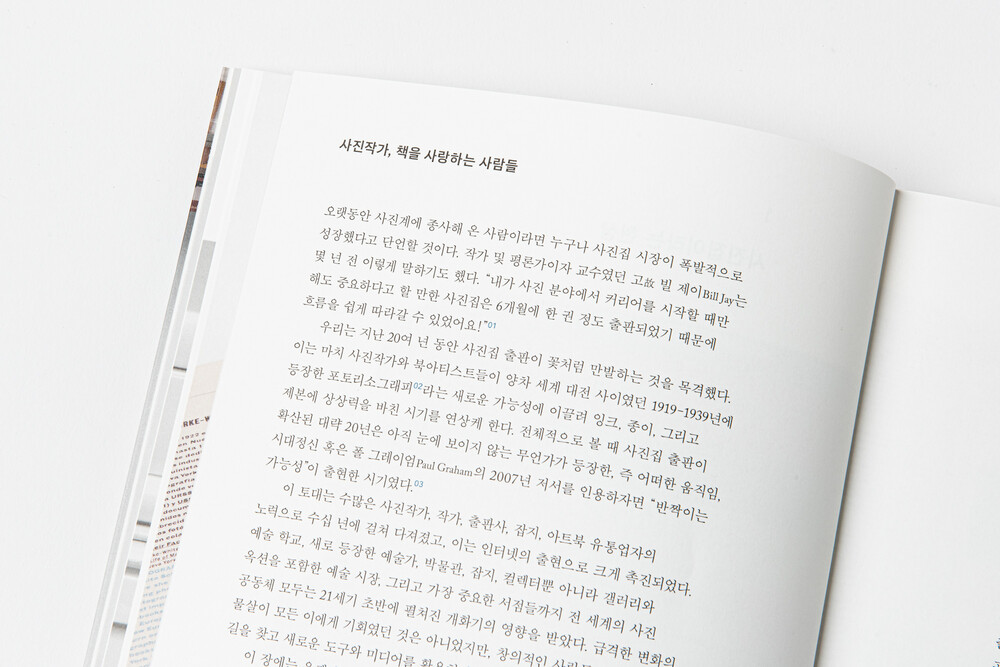 사진작가, 책을 사랑하는 사람들
오랫동안 사진계에 종사해 온 사람이라면 누구나 사진집 시장이 폭발적으로
성장했다고 단언할 것이다. 작가 및 평론가이자 교수였던 고故 빌 제이Bill Jay는
몇 년 전 이렇게 말하기도 했다. “내가 사진 분야에서 커리어를 시작할 때만
해도 중요하다고 할 만한 사진집은 6개월에 한 권 정도 출판되었기 때문에
흐름을 쉽게 따라갈 수 있었어요!”01
우리는 지난 20여 년 동안 사진집 출판이 꽃처럼 만발하는 것을 목격했다.
이는 마치 사진작가와 북아티스트들이 양차 세계 대전 사이였던 1919-1939년에
등장한 포토리소그래피02라는 새로운 가능성에 이끌려 잉크, 종이, 그리고
제본에 상상력을 바친 시기를 연상케 한다. 전체적으로 볼 때 사진집 출판이
확산된 대략 20년은 아직 눈에 보이지 않는 무언가가 등장한, 즉 어떠한 움직임,
시대정신 혹은 폴 그레이엄Paul Graham의 2007년 저서를 인용하자면 “반짝이는
가능성”이 출현한 시기였다.03
이 토대는 수많은 사진작가, 작가, 출판사, 잡지, 아트북 유통업자의
노력으로 수십 년에 걸쳐 다져졌고, 이는 인터넷의 출현으로 크게 촉진되었다.
예술 학교, 새로 등장한 예술가, 박물관, 잡지, 컬렉터뿐 아니라 갤러리와
옥션을 포함한 예술 시장, 그리고 가장 중요한 서점들까지 전 세계의 사진
공동체 모두는 21세기 초반에 펼쳐진 개화기의 영향을 받았다. 급격한 변화의
물살이 모든 이에게 기회였던 것은 아니었지만, 창의적인
길을 찾고 새로운 도구와 미디어를
이 장에는